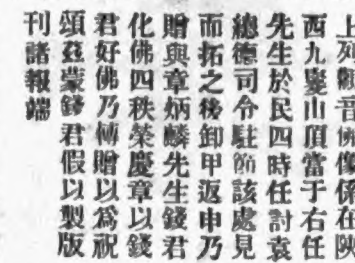 上列觀音佛像係在陝
西九嵏山頂當于右任
先生於民四時任討袁
總德司令駐節該處見
而拓之後卸甲返申乃
贈與章炳麟先生錢君
化佛四秩榮慶章以錢
君好佛乃轉贈以爲祝
頌茲蒙錢君假以製版
刊諸報端